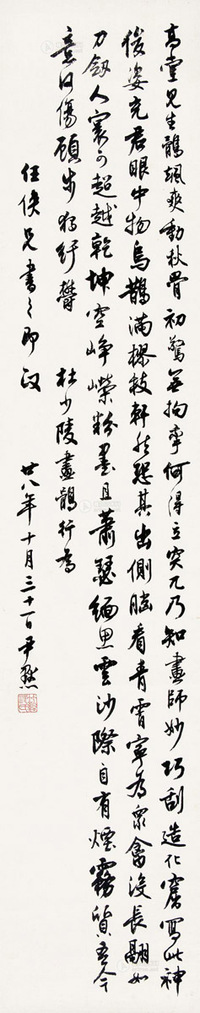 高堂見生鶻颯爽動秋骨初驚無拘攣何得立突兀乃知畫師妙巧刮造化窟寫此神
俊姿充君眼中物烏鵲滿樛枝軒然恐其出側腦看青霄寧為衆禽沒長翮如
刀劍人寰可超越乾坤空崢嶸粉墨且蕭瑟緬思雲沙際自有煙霧質吾今
意何傷顧步獨紆鬱 杜少陵畫鶻行為
任侯兄書之即政 廿八年十月三十一日尹默